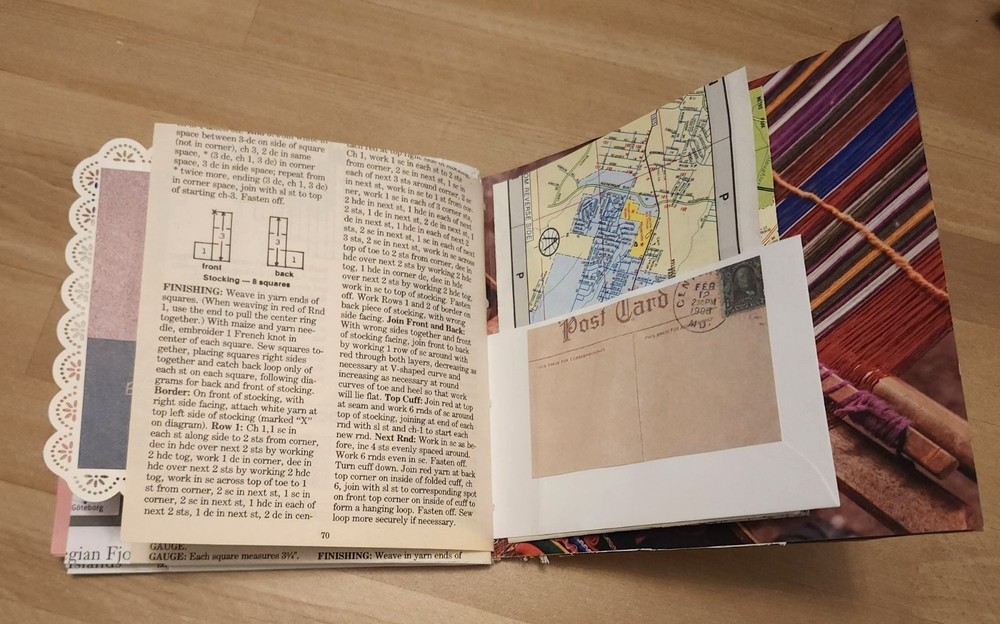 space between 3-dc on side of square
(not in corner), ch 3, 2 dc in same
space, * (3 dc, ch 1, 3 dc) in corner
space, 3 dc in side space; repeat from
* twice more, ending (3 dc, ch 1, 3 dc)
in corner space, join with sl st to top
of starting ch-3. Fasten off.
X
3
1
front
3
1
back
Stocking — 8 squares
FINISHING: Weave in yarn ends of
squares. (When weaving in red of Rnd
1, use the end to pull the center ring
together.) With maize and yarn nee-
dle, embroider 1 French knot in
center of each square. Sew squares to-
gether, placing squares right sides
together and catch back loop only of
each st on each square, following dia-
grams for back and front of stocking.
Border: On front of stocking, with
right side facing, attach white yarn at
top left side of stocking (marked "X"
on diagram). Row 1: Ch 1, 1 sc in
each st along side to 2 sts from corner,
dec in hdc over next 2 sts by working
2 hdc tog, work 1 dc in corner, dec in
hdc over next 2 sts by working 2 hdc
tog, work in sc across top of toe to 1
st from corner, 2 sc in next st, 1 sc in
corner, 2 sc in next st, 1 hdc in each of
next 2 sts, 1 dc in next st, 2 dc in cen-
Ch 1, work 1 sc in each st to 2 sts
from corner, 2 sc in next st, 1 sc in
each of next 3 sts around corner, 2 sc
in next st, work in sc to 1 st from cor-
ner, work 1 sc in each of 3 corner sts,
2 hdc in next st, 1 hdc in each of next
2 sts, 1 dc in next st, 2 dc in next st, 1
dc in next st, 1 hdc in each of next 2
sts, 2 sc in next st, 1 sc in each of next
3 sts, 2 sc in next st, work in sc across
top of toe to 2 sts from corner, dec in
hdc over next 2 sts by working 2 hdc
tog, 1 hdc in corner dc, dec in hdc
over next 2 sts by working 2 hdc tog,
work in sc to top of stocking. Fasten
off. Work Rows 1 and 2 of border on
back piece of stocking, with wrong
side facing. Join Front and Back:
With wrong sides together and front
of stocking facing, join front to back
by working 1 row of sc around with
red through both layers, decreasing as
necessary at V-shaped curve and
increasing as necessary at round
curves of toe and heel so that work
will lie flat. Top Cuff: Join red at top
at seam and work 6 rnds of sc around
top of stocking, joining at end of each
rnd with sl st and ch-1 to start each
new rnd. Next Rnd: Work in sc as be-
fore, inc 4 sts evenly spaced around.
Work 6 rnds even in sc. Fasten off.
Turn cuff down. Join red yarn at back
top corner on inside of folded cuff, ch
6, join with sl st to corresponding spot
on front top corner on inside of cuff to
form a hanging loop. Fasten off. Sew
loop more securely if necessary.
70
Göteborg
gian Fjo
GAUGE.
GAUGE: Each square measures 3¼",
FINISHING: Weave in yarn ends of
REVERSE SIDE
P
P
Post Card
FEB
12
MO.